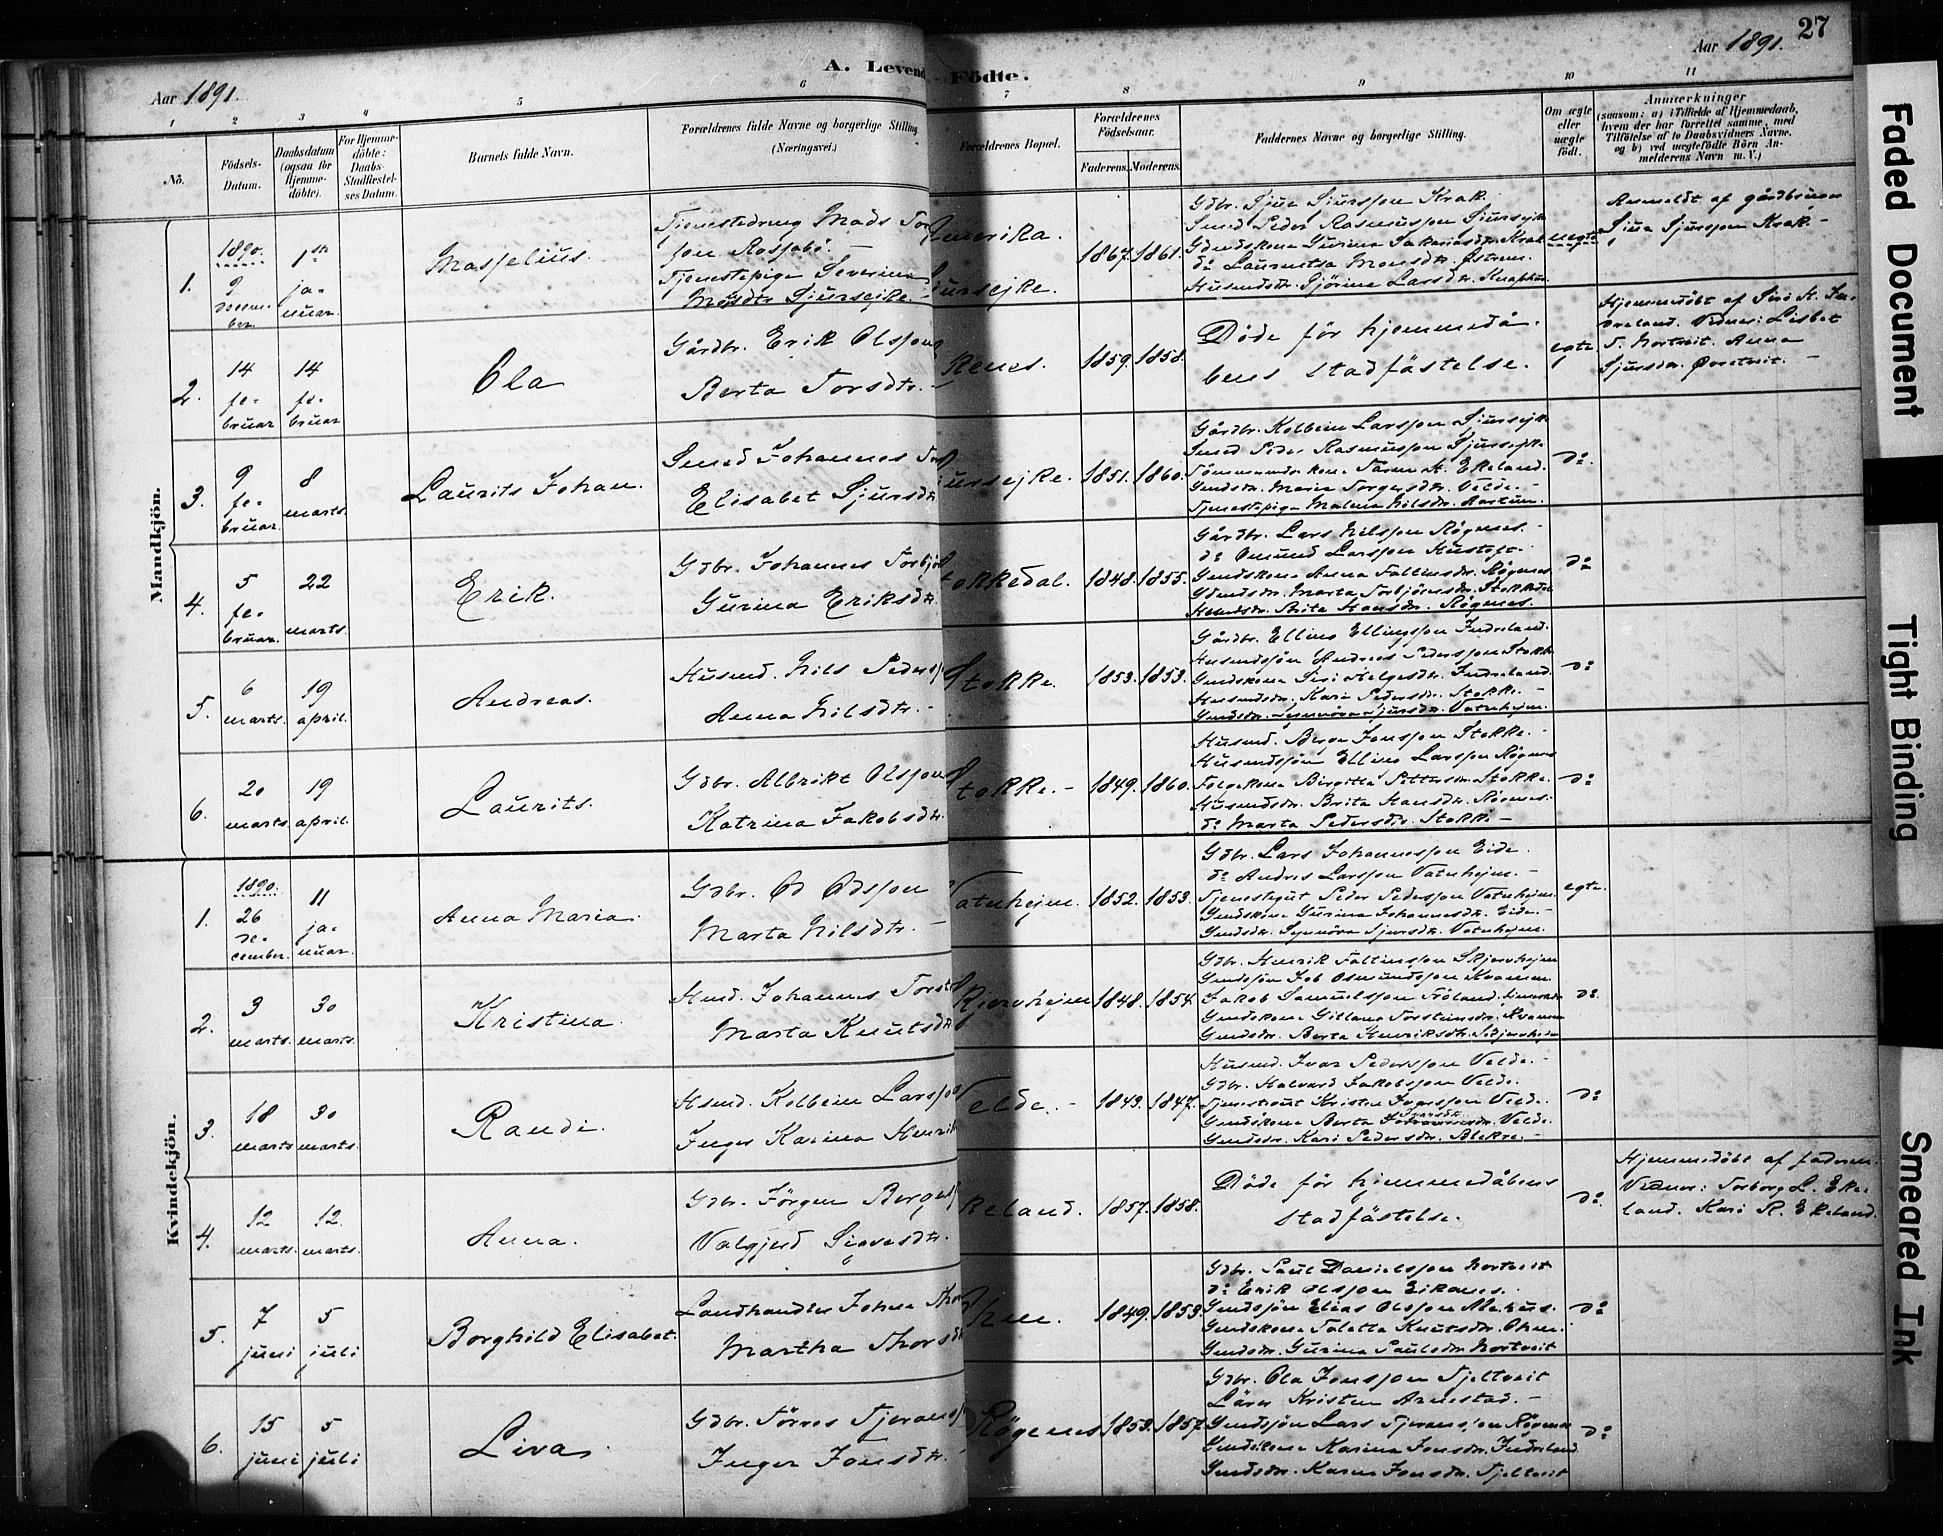 27
A. Levend Födte.
Aar 1891.
Aar 1891.
1 2 3 4 5 6 7 8 9 10 11
Nô.
Födsels-
Datum.
Daabsdatum
(ogsaa for
Hjemme-
döbte).
For Hjemme-
döbte:
Daabs-
Stadfæstel-
ses Datum.
Barnets fulde Navn.
Forældrenes fulde Navne og borgerlige Stilling
(Næringsvei.)
Forældrenes Bopæl.
Forældrenes
Födselsaar.
Faderens. Moderens.
Faddernes Navne og borgerlige Stilling.
Om ægte
eller
uægte
födt.
Anmærkninger
(saasom: a) i Tilfælde af Hjemmedaab,
hvem der har forrettet samme, med
Tilföielse af to Daabsvidners Navne.
og b) ved uægtefödte Börn An-
melderens Navn m. V.)
Mandkjön.
1.
1890.
9
decem-
ber
1ste
ja-
nuar.
Masselius.
Tjenestedreng Mads Tor
son Rossabö. -
Tjenestepige Severine
Mosdtr Sjurseike.
Amerika.
ursejke.
1867. 1861.
Gdbr. Sjur Sjursson Krak
Smed Peder Rasmusson Sjursejke
Gdmdskone Gurina Sakariasdtr. Krak
do Lauritsa Monsdtr. Östrem.
Husmdsdtr. Sjörina Larsdtr.
uegte
Anmeldt af gårdbruger
Sjur Sjursson Krak. -
2.
14
fe-
bruar
14
fe-
bruar
Ola
Gårdbr. Erik Olsson
Berta Torsdtr. -
Renes.
1859. 1858.
Döde för hjemmedå-
bens stadfästelse.
egte
Hjemmedöbt af Siri H. In-
dreland. Vidner: Lisbet
T. Nortveit. Anna
Sjursdtr. Övretveit. -
3.
9
fe-
bruar.
8
marts.
Laurits Johan.
Smed Johannes Tor
Elisabet Sjursdtr.
ursejke.
1851. 1860.
Gårdbr. Kolbein Larsson Sjursejke
Smed Peder Rasmusson Sjursejke
Tömmermdskone Taran A. Ekeland.
Gmdsdtr. Marie Torgersdtr. Velde. -
Tjenestepige Malena Nilsdtr. Aartun.
do.
4.
5
fe-
bruar.
22
marts.
Erik.
Gdbr. Johannes Torbjö
Gurina Eriksdtr.
tokkedal.
1848. 1855.
Gårdbr. Lars Nilsson Rögenes. -
do Omund Larsson Hustoft -
Gmdskone Anna Faltinsdtr. Rögenes
Gdmdsdtr. Marta Torbjörnsdtr. Stokkedal
Husmdsdtr. Brita Hansdtr. Rögenes.
do
5.
6
marts.
19
april.
Andreas.
Husmd. Nils Peders
Anna Nilsdtr. -
Stokke.
1853. 1853.
Gårdbr. Elling Ellingsson Indreland.
Husmdssön Andreas Pedersson Stokke
Gmdskone Siri Helgesdtr. Indreland.
Husmdsdtr. Kari Pedersdtr. Stokke. -
Gmdsdtr. Synnöva Sjursdtr. Vatnhejm.
do
6.
20
marts.
19
april.
Laurits.
Gdbr. Albrikt Olsson
Katrina Jakobsdtr.
Stokke. -
1849. 1860.
Husmd. Berge Jonsson Stokke. -
Husmdssön Elling Larsson Rögenes
Folgekone Birgitta Pettersdtr. Stokke.
Husmdsdtr. Brita Hansdtr. Rögenes.
do Marta Pedersdtr. Stokke -
do
Kvindekjön.
1.
1890.
26
de-
cember.
11
ja-
nuar.
Anna Maria.
Gdbr. Od Odsson
Marta Nilsdtr. -
Vatnhejm.
1852. 1853.
Gdbr. Lars Johannesson Eide.
do Andres Larsson Vatnhejm. -
Tjenestegut Peder Pedersson Vatnhejm.
Gmdskone Gurina Johannesdtr. Eide. -
Gmdsdtr. Synnöva Sjursdtr. Vatnhejm.
egte.
2.
3
marts.
30
marts.
Kristina.
Hmd. Johannes Torst
Marta Knutsdtr
kjervhejm
1848. 1854.
Gdbr. Henrik Faltinsson Skjervhejm
Gmdssön Job Osmundsson Kvamen
Jakob Samuelsson Fröland.
Gmdskone Gitlana Torsteinsdtr. Kvamen
Gmdsdtr. Berta Henriksdtr. Skjervhejm
do.
3.
18
marts.
30
marts.
Randi.
Hsmd. Kolbein Larsso
Inger Karina Henrik
Velde. -
1843. 1847.
Husmd. Ivar Pedersson Velde. -
Gdbr. Halvard Jakobsson Velde.
Tjenestegut Kristen Ivarsson Velde.
Gmdskone Berta Ivarsdtr. Velde.
Gmdsdtr. Kari Pedersdtr. Blekre. -
do
4.
12
marts.
12.
marts.
Anna.
Gdbr. Jörgen Berges
Valgjerd Sjovesdtr.
keland.
1857. 1858.
Döde för hjemmedåbens
stadfästelse.
do
Hjemmedöbt af faderen.
Vidner: Torborg L. Eke-
land. Kari R. Ekeland.
5.
7
juni
5
juli
Borghild Elisabet.
Landhandler Johne Thor
Martha Thorsdtr
hm.
1849. 1853.
Gdbr. Paul Danielsson Nortveit
do Erik Olsson Eikanes.
Gmdssön Elias Olsson
Gmdskone Taletta Knutsdtr. Ohm.
Gmdsdtr. Gurina Paulsdtr. Nortveit
do
6.
15
juni
5
juli
Liva.
Gdbr. Törres Tjerans
Inger Jonsdtr.
Rögenes
1853. 1857.
Gdbr. Ola Jonsson Tjeltveit
Lärer Kristen Arnestad. -
Gmdssön Lars Tjeransson Rögenes
Gmdskone Karina Jonsdtr. Indreland
Gmdsdtr. Karen Jonsdtr. Tjeltveit
do
Faded Document
Tight Binding
Smeared Ink